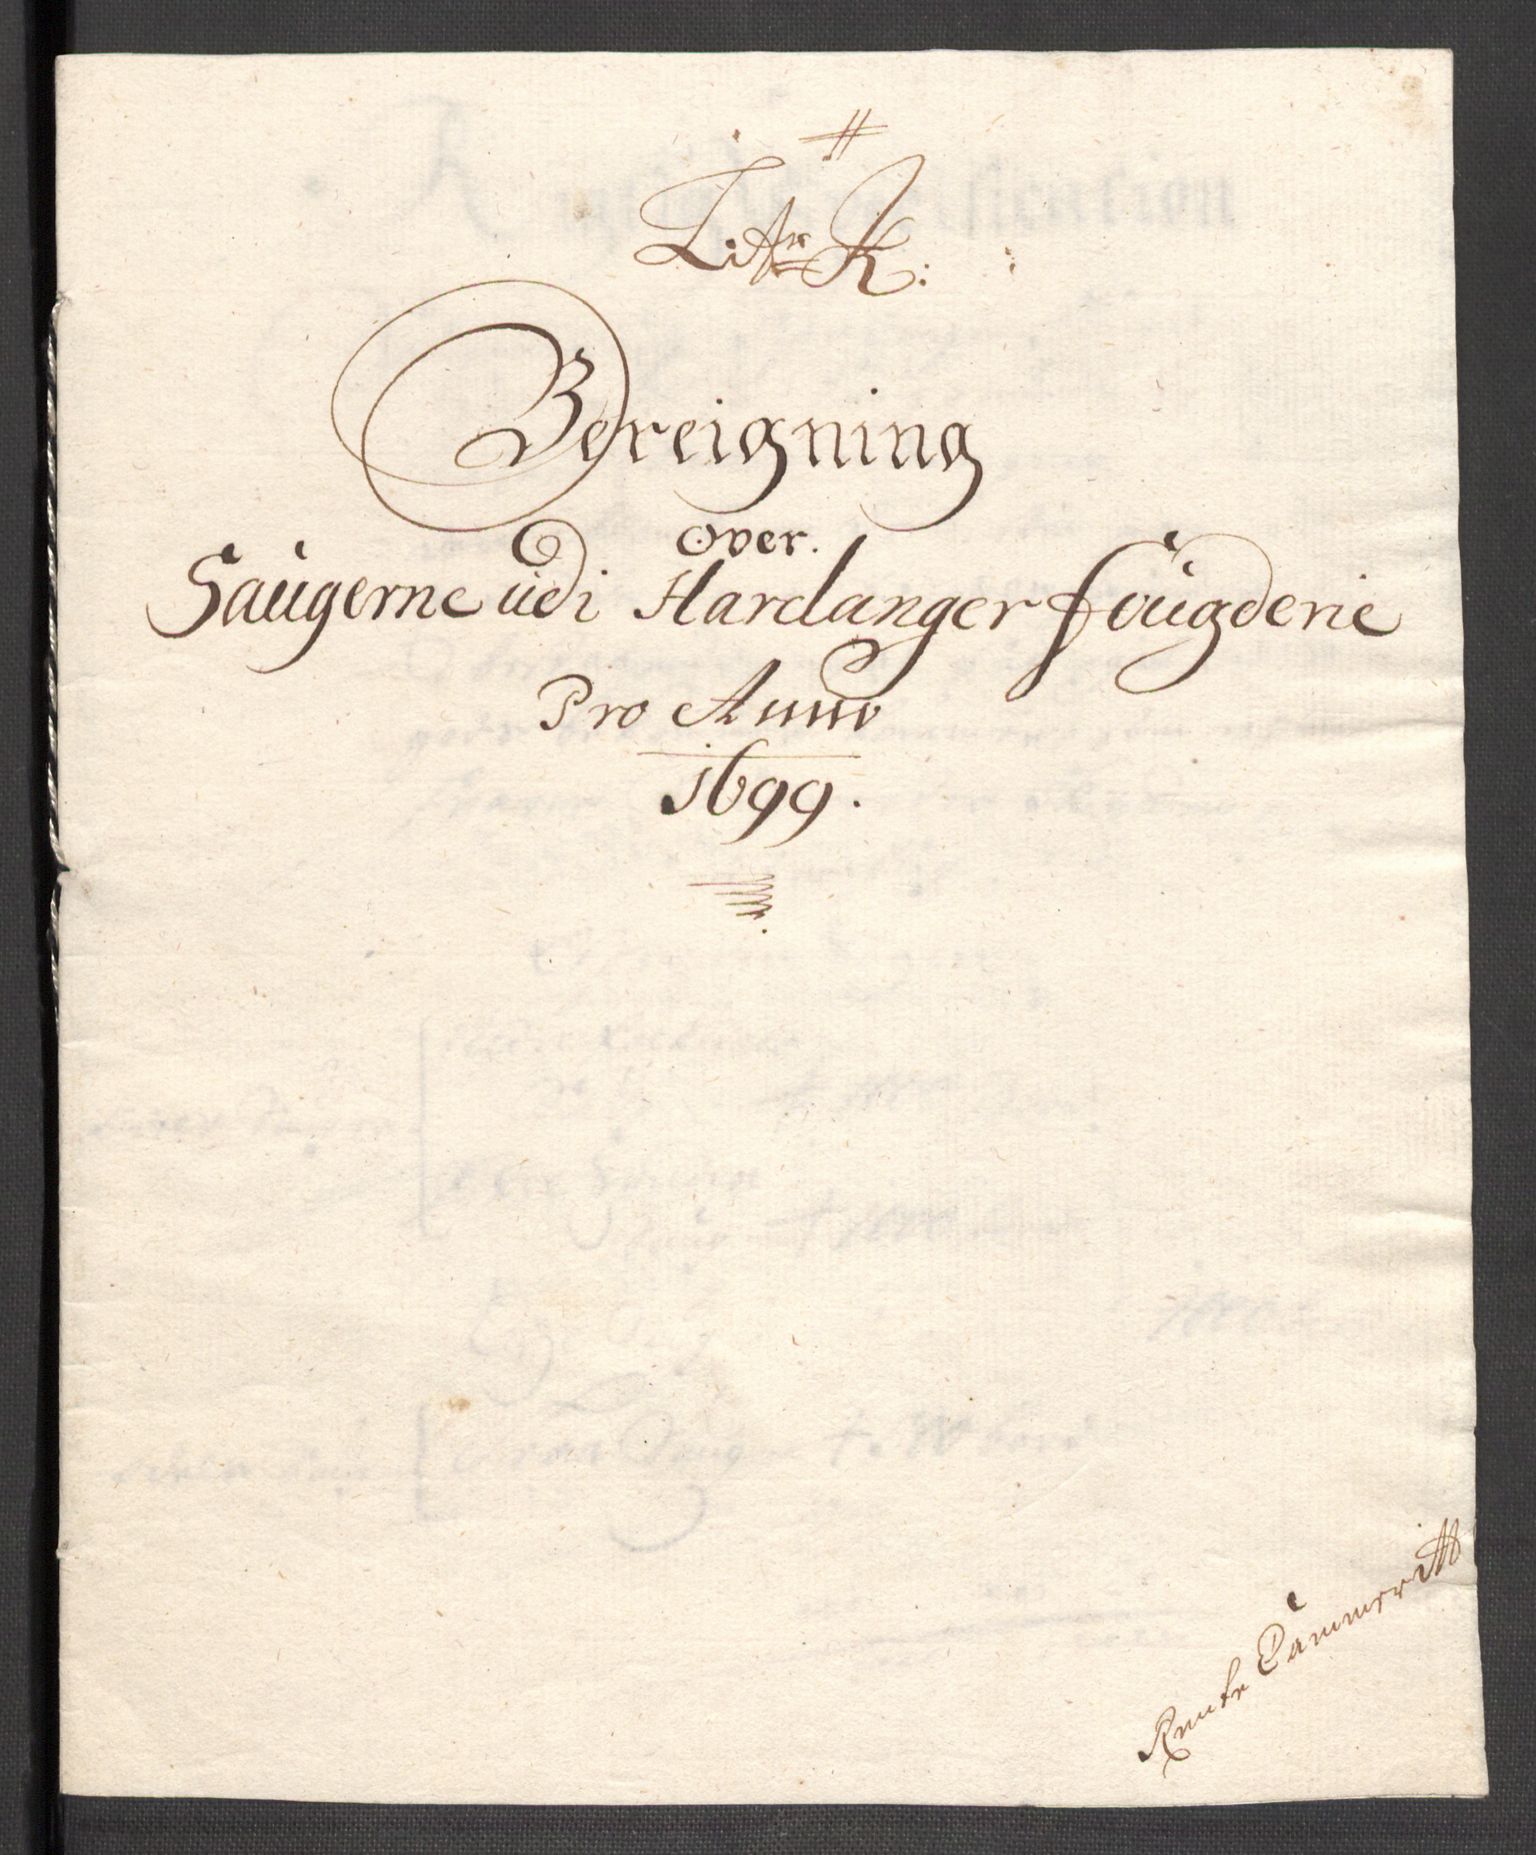 #
Litr K:
Bereigning
over.
Saugerne udi Hardanger fougderie
Pro Anno
1699.
Rente Cammer